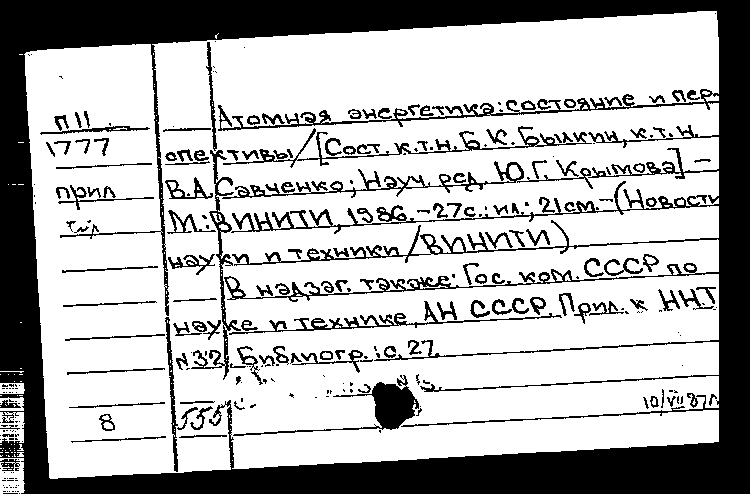 П11
1777
прил
Атомная энергетика: состояние и пер-
спективы / [Сост. к.т.н. Б.К. Былкин, к.т.н.
В.А. Савченко; Науч. ред. Ю.Г. Крымова]. –
М.: ВИНИТИ, 1986. – 27с.: ил.; 21см. – (Новости
науки и техники / ВИНИТИ).
В надзаг. также: Гос. ком. СССР по
науке и технике, АН СССР. Прил. к ННТ
№32. Библиогр.: с. 27.
8
555
10/VII 87г